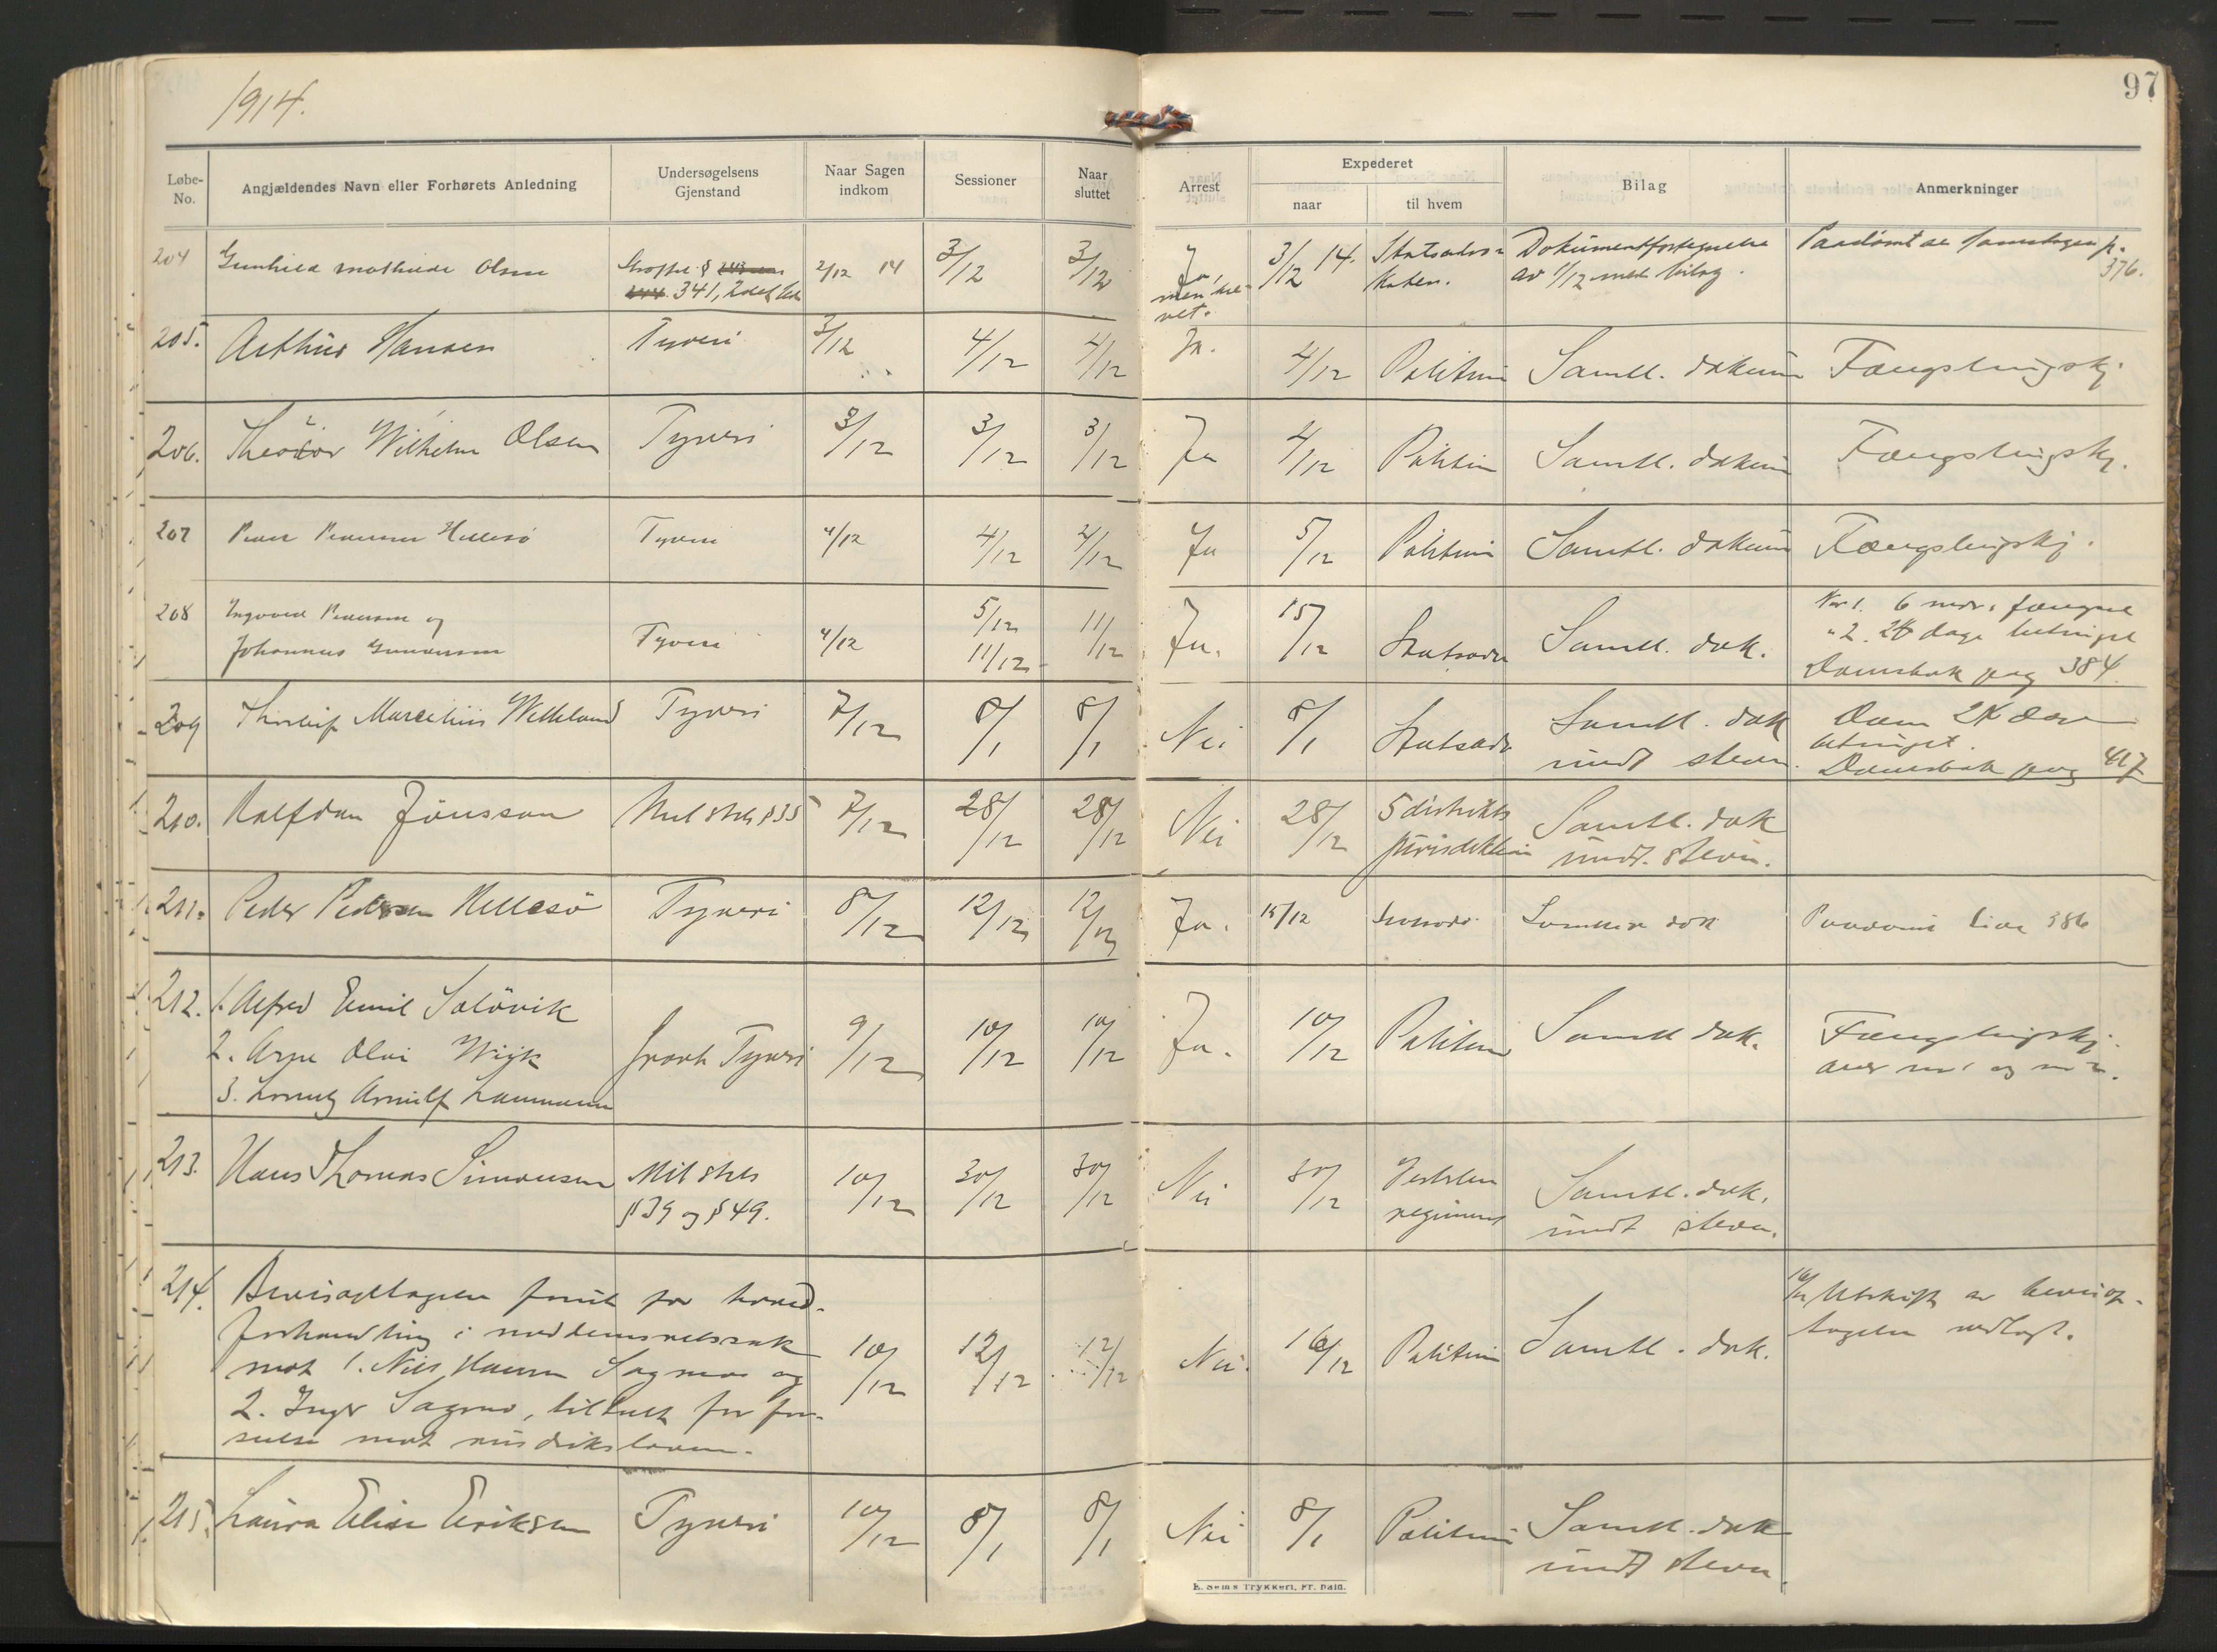 1914.
97
Løbe-No.
Angjældendes Navn eller Forhørets Anledning
Undersøgelsens Gjenstand
Naar Sagen indkom
Sessioner
Naar sluttet
Arrest
Expederet
naar
til hvem
Bilag
Anmerkninger
204 Gunhild Mathilde Olsen
Straffel. §
341, 2det led
2/12 14
3/12
3/12
Ja,
men
3/12 14.
Statsadvo-
katen.
Dokumentfortegnelse
av 1/12 med bilag.
Paadømt se domsbogen p.
376.
205. Arthur Hansen Tyveri 3/12 4/12 4/12 Ja. 4/12 Politiet Samtl. dokum Fængslingskj.
206. Theodor Wilhelm Olsen Tyveri 3/12 3/12 3/12 Ja 4/12 Politiet Samtl. dokum Fængslingskj.
207 Peder Pedersen Hellesö Tyveri 4/12 4/12 4/12 Ja 5/12 Politiet Samtl. dokum Fængslingskj.
208 Ingvald Pedersen og
Johannes Gundersen
Tyveri 4/12
5/12
11/12
11/12
Ja. 15/12 Statsadv Samtl. dok.
No 1. 6 mdr. fængsel
" 2. dage betinget
Domsbok pag 384.
209 Marcelius Tyveri 7/12 8/1 8/1 Nei 8/1 Statsadv
Samtl. dok
undt stevn.
Dom
betinget.
Domsbok pag 417
210. Halfdan Jönsson Mil strl § 35 7/12 28/12 28/12 Nei 28/12
5 distrikts
jurisdiktion
Samtl. dok
undt. stevn.
211. Peder Pedersen Hellesö Tyveri 8/12 12/12 12/12 Ja. 15/12 Statsadv. Samtlige dok 386
212. 1. Alfred Emil Solövik
2. Arne Olai Wiik
3. Arnulf
grovt Tyveri 9/12 10/12 10/12 Ja. 10/12 Politiet Samtl dok.
Fængslingskj.
over no 1 og no 2.
213. Hans Thomas Simonsen
Mil strl
§ 39 og § 49.
10/12 30/12 30/12 Nei 30/12
regiment
Samtl. dok.
undt stevn.
214. Bevisoptagelse forut for hoved-
forhandling i meddomsretssak
mot 1. Nils Hansen Sagmo og
2. Inger Sagmo, tiltalt for for-
seelse mot rusdrikloven.
10/12 12/12 12/12 Nei. 16/12 Politiet Samtl. dok.
Utskrift av bevisop-
tagelse vedlagt.
215. Laura Elise Eriksen Tyveri 10/12 8/1 8/1 Nei 8/1 Politiet
Samtl. dok
undt stevn.
E. Sems Trykkeri, Fr.hald.